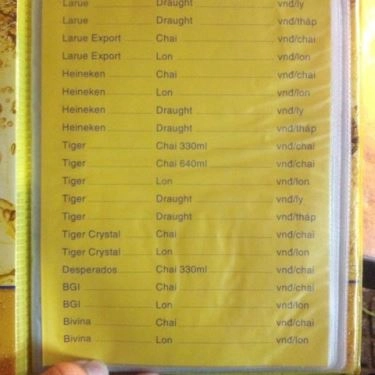 Larue Draught vnđ/ly
Larue Draught vnđ/tháp
Larue Export Chai vnđ/chai
Larue Export Lon vnđ/lon
Heineken Chai vnđ/chai
Heineken Lon vnđ/lon
Heineken Draught vnđ/ly
Heineken Draught vnđ/tháp
Tiger Chai 330ml vnđ/chai
Tiger Chai 640ml vnđ/chai
Tiger Lon vnđ/lon
Tiger Draught vnđ/ly
Tiger Draught vnđ/tháp
Tiger Crystal Chai vnđ/chai
Tiger Crystal Lon vnđ/lon
Desperados Chai 330ml vnđ/chai
BGI Chai vnđ/chai
BGI Lon vnđ/lon
Bivina Chai vnđ/chai
Bivina Lon vnđ/lon